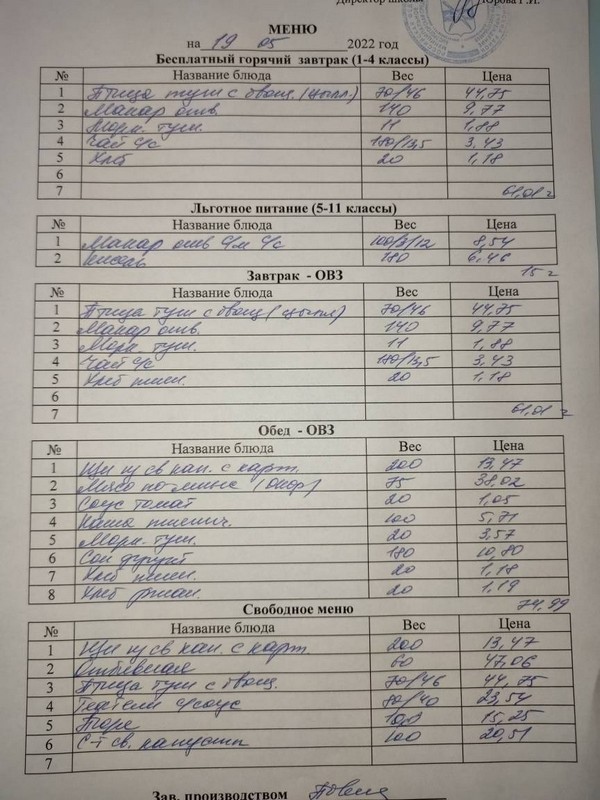 Директор школы Юрова Г.И.
МЕНЮ
на 19 05 2022 год
Бесплатный горячий завтрак (1-4 классы)
№ Название блюда Вес Цена
1 Птица туш с овощ. (цыпл.) 70/46 44,75
2 Макар отв. 140 9,77
3 Морк. туш. 11 1,88
4 Чай с/с 180/13,5 3,43
5 Хлеб 20 1,18
6
7 61,01 г
Льготное питание (5-11 классы)
№ Название блюда Вес Цена
1 Макар отв с/м с/с 100/3/12 8,54
2 Кисель 180 6,46
15 г
Завтрак - ОВЗ
№ Название блюда Вес Цена
1 Птица туш с овощ (цыпл) 70/46 44,75
2 Макар отв. 140 9,77
3 Морк. туш. 11 1,88
4 Чай с/с 180/13,5 3,43
5 Хлеб пшен. 20 1,18
6
7 61,01 г
Обед - ОВЗ
№ Название блюда Вес Цена
1 Щи из св кап. с карт. 200 13,47
2 Мясо 75 38,02
3 Соус томат 20 1,05
4 Каша пшенич. 100 5,71
5 Морк. туш. 20 3,57
6 Сок фрукт 180 10,80
7 Хлеб пшен. 20 1,18
8 Хлеб ржан. 20 1,19
74,99
Свободное меню
№ Название блюда Вес Цена
1 Щи из св кап. с карт. 200 13,47
2 Отбивная 60 47,06
3 Птица туш с овощ. 70/46 44,75
4 Тефтели с/соус 80/40 23,54
5 Пюре 100 15,25
6 С-т св. капусты 100 20,51
7
Зав. производством